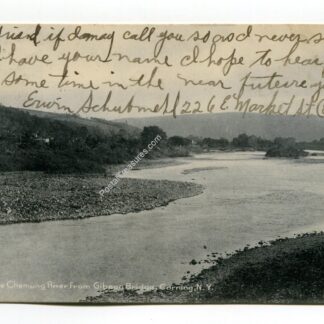 friend if I may call you so and never s
have your name I hope to hear
some time in the near future y
Erwin Schubmehl 226 E Market St C
postaltreasures.com
Chemung River from Gibson Bridge, Corning, N.Y.